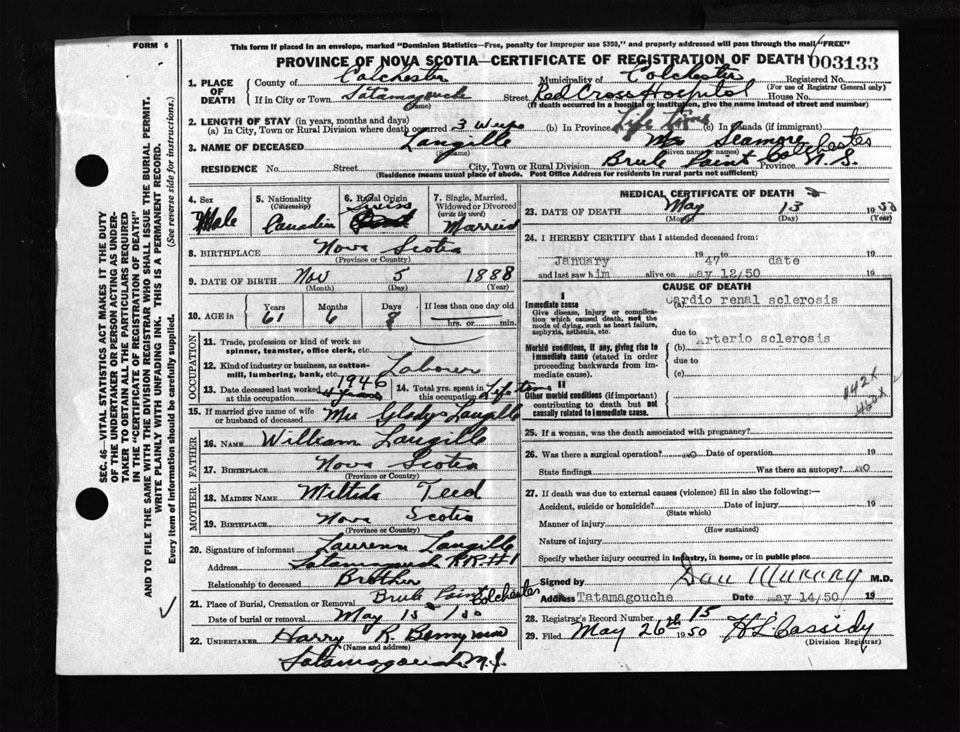 FORM 6
This form if placed in an envelope, marked "Dominion Statistics—Free, penalty for improper use $300," and properly addressed will pass through the mail "FREE"
PROVINCE OF NOVA SCOTIA—CERTIFICATE OF REGISTRATION OF DEATH 003133
1. PLACE OF DEATH
County of Colchester Municipality of Colchester Registered No.
(For use of Registrar General only)
If in City or Town Tatamagouche Street Red Cross Hospital House No.
(Name) (If death occurred in a hospital or institution, give the name instead of street and number)
2. LENGTH OF STAY (in years, months and days)
(a) In City, Town or Rural Division where death occurred 3 (b) In Province Life time (c) In Canada (if immigrant)
3. NAME OF DECEASED Langille Seamore
(name) (Given name or names)
RESIDENCE No. Street City, Town or Rural Division Brule Point Colchester Province N.S.
(Residence means usual place of abode. Post Office Address for residents in rural parts not sufficient)
4. Sex
Male
5. Nationality (Citizenship)
Canadian
6. Racial Origin
Swiss
7. Single, Married, Widowed or Divorced (write the word)
Married
8. BIRTHPLACE Nova Scotia
(Province or Country)
9. DATE OF BIRTH Nov 5 1888
(Month) (Day) (Year)
10. AGE in Years Months Days If less than one day old
61 6 8 hrs. or min.
OCCUPATION
11. Trade, profession or kind of work as spinner, teamster, office clerk, etc.
12. Kind of industry or business, as cotton-mill, lumbering, bank, etc. Laborer
13. Date deceased last worked at this occupation 1946 4 years
14. Total yrs. spent in this occupation Life time
15. If married give name of wife or husband of deceased Mrs Gladys Langille
FATHER
16. NAME William Langille
17. BIRTHPLACE Nova Scotia
(Province or Country)
MOTHER
18. MAIDEN NAME Teed
19. BIRTHPLACE Nova Scotia
(Province or Country)
20. Signature of informant Langille
Address Tatamagouche RR#1
Relationship to deceased Brother
21. Place of Burial, Cremation or Removal Brule Point Colchester
Date of burial or removal May 15 /50
22. UNDERTAKER Harry R.
(Name and address)
Tatamagouche N.S.
MEDICAL CERTIFICATE OF DEATH
23. DATE OF DEATH May 13 1950
(Month) (Day) (Year)
24. I HEREBY CERTIFY that I attended deceased from:
January 1947 to date 19
and last saw him alive on may 12/50 19
CAUSE OF DEATH
I
Immediate cause (a) Cardio renal sclerosis
Give disease, injury or complication which caused death, not the mode of dying, such as heart failure, asphyxia, asthenia, etc.
due to
Morbid conditions, if any, giving rise to immediate cause (stated in order proceeding backwards from immediate cause).
(b) Arterio sclerosis
due to
(c)
II
Other morbid conditions (if important) contributing to death but not causally related to immediate cause.
442X
25. If a woman, was the death associated with pregnancy?
26. Was there a surgical operation? NO Date of operation 19
State findings Was there an autopsy? NO
27. If death was due to external causes (violence) fill in also the following:—
Accident, suicide or homicide? Date of injury 19
(State which)
Manner of injury
(How sustained)
Nature of injury
Specify whether injury occurred in industry, in home, or in public place
Signed by Dan Murray M.D.
Address Tatamagouche Date may 14/50 19
28. Registrar's Record Number 15
29. Filed May 26th 1950 H L Cassidy
(Division Registrar)
SEC. 46—VITAL STATISTICS ACT MAKES IT THE DUTY OF THE UNDERTAKER OR PERSON ACTING AS UNDERTAKER TO OBTAIN ALL THE PARTICULARS REQUIRED IN THE "CERTIFICATE OF REGISTRATION OF DEATH" AND TO FILE THE SAME WITH THE DIVISION REGISTRAR WHO SHALL ISSUE THE BURIAL PERMIT.
WRITE PLAINLY WITH UNFADING INK. THIS IS A PERMANENT RECORD.
Every item of information should be carefully supplied. (See reverse side for instructions.)